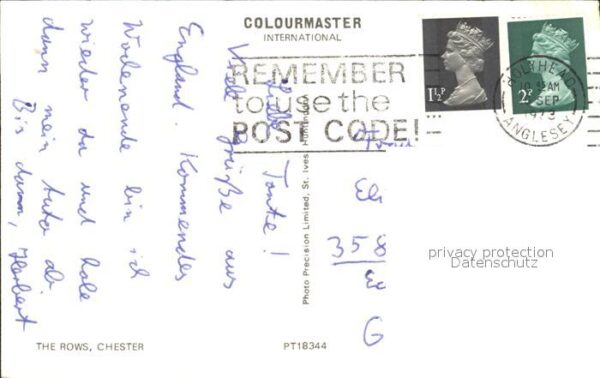 COLOURMASTER
INTERNATIONAL
REMEMBER
to use the
POST CODE!
1½P
2P
HOLYHEAD
AM
SEP
1973
ANGLESEY
Liebe Tante!
Viele Grüße aus
England. Kommendes
Wochenende bin ich
wieder da und hole
dann mein Auto ab.
Bis dann, Herbert
Photo Precision Limited, St. Ives, Huntingdon
358
G
privacy protection
Datenschutz
THE ROWS, CHESTER
PT18344